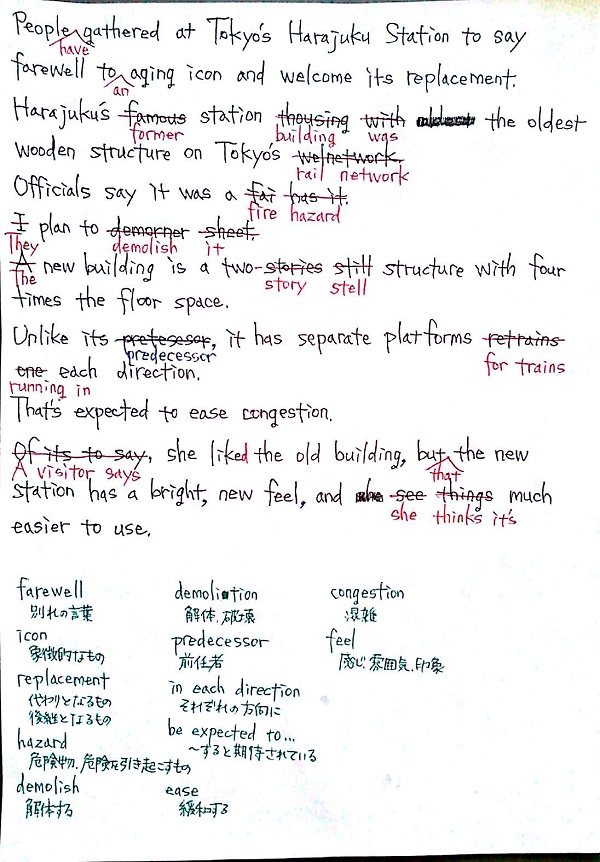 People gathered at Tokyo's Harajuku Station to say
have
farewell to aging icon and welcome its replacement.
an
Harajuku's famous station thousing with the oldest
former building was
wooden structure on Tokyo's welnetwork.
rail network
Officials say it was a fai has it.
fire hazard
I plan to demorner sheet.
They demolish it
A new building is a two-stories still structure with four
The story stell
times the floor space.
Unlike its pretesesor, it has separate platforms retrains
predecessor for trains
one each direction.
running in
That's expected to ease congestion.
Of its to say, she liked the old building, but the new
A visitor says that
station has a bright, new feel, and she see things much
she thinks it's
easier to use.
farewell demoliation congestion
別れの言葉 解体、破壊 混雑
icon predecessor feel
象徴的なもの 前任者 感じ、雰囲気、印象
replacement in each direction
代わりとなるもの それぞれの方向に
後継となるもの be expected to...
hazard ～すると期待されている
危険物、危険を引き起こすもの
demolish ease
解体する 緩和する